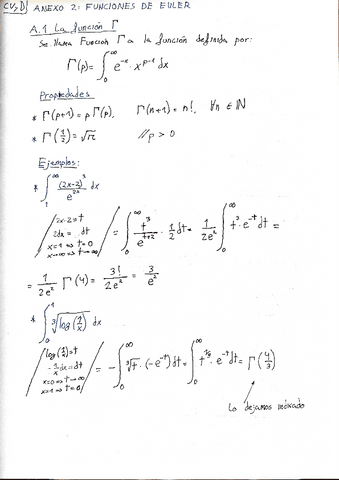 CV,D) ANEXO 2: FUNCIONES DE EULER
A.1 La función Γ
Se llama Función Γ a la función definida por:
Γ(p) = ∫₀^∞ e^{-x} · x^{p-1} dx
Propiedades
* Γ(p+1) = p Γ(p), Γ(n+1) = n!, ∀n ∈ ℕ
* Γ(1/2) = √π // p > 0
Ejemplos:
* ∫₁^∞ (2x-2)³/e^{2x} dx
/ 2x-2=t
2dx = dt
x=1 ⇒ t=0
x→∞ ⇒ t→∞ / = ∫₀^∞ t³/e^{t+2} · 1/2 dt = 1/2e² ∫₀^∞ t³ · e^{-t} dt =
= 1/2e² Γ(4) = 3!/2e² = 3/e²
* ∫₀^1 ∛log(1/x) dx
/ log(1/x)=t
-1/x dx = dt
x=0 ⇒ t→∞
x=1 ⇒ t=0 / = -∫₀^∞ ∛t · (-e^{-t}) dt = ∫₀^∞ t^{1/3} · e^{-t} dt = Γ(4/3)
Lo dejamos indicado